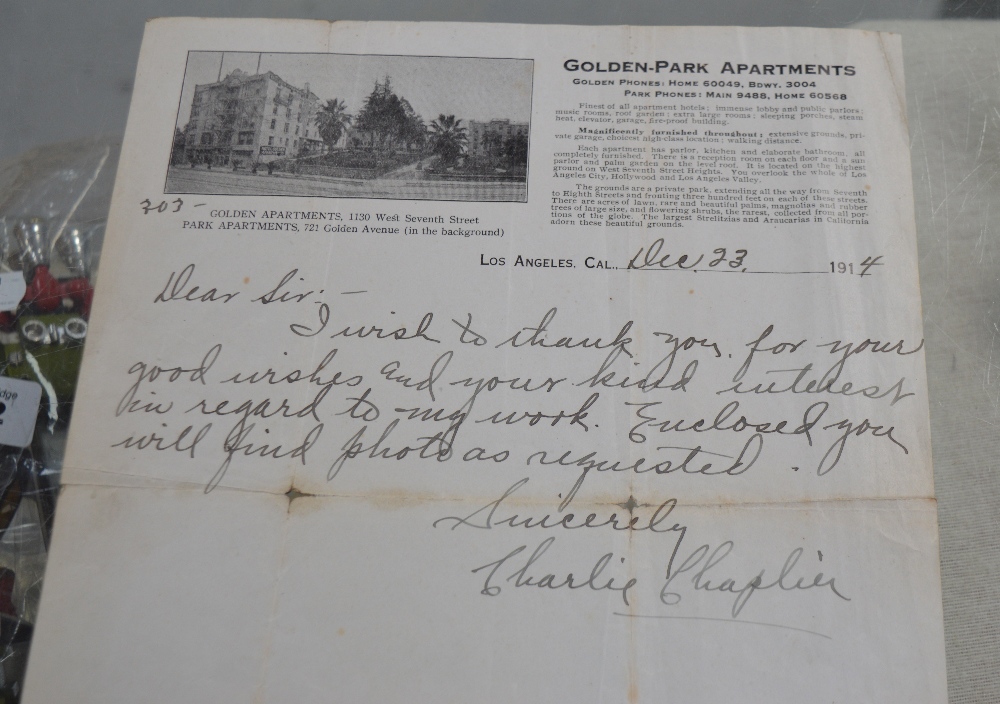 GOLDEN-PARK APARTMENTS
GOLDEN PHONES: HOME 60049, BDWY. 3004
PARK PHONES: MAIN 9488, HOME 60568
Finest of all apartment hotels; immense lobby and public parlors;
music rooms, roof garden; extra large rooms; sleeping porches, steam
heat, elevator, garage, fire-proof building.
Magnificently furnished throughout; extensive grounds, pri-
vate garage, choicest high-class location; walking distance.
Each apartment has parlor, kitchen and elaborate bathroom, all
completely furnished. There is a reception room on each floor and a sun
parlor and palm garden on the level roof. It is located on the highest
ground on West Seventh Street Heights. You overlook the whole of Los
Angeles City, Hollywood and Los Angeles Valley.
The grounds are a private park, extending all the way from Seventh
to Eighth Streets and fronting three hundred feet on each of these streets.
There are acres of lawn, rare and beautiful palms, magnolias and rubber
trees of large size, and flowering shrubs, the rarest, collected from all por-
tions of the globe. The largest Strelitzias and Araucarias in California
adorn these beautiful grounds.
303-
GOLDEN APARTMENTS, 1130 West Seventh Street
PARK APARTMENTS, 721 Golden Avenue (in the background)
LOS ANGELES, CAL., Dec. 23, 1914
Dear Sir:-
I wish to thank you, for your
good wishes and your kind interest
in regard to my work. Enclosed you
will find photo as requested.
Sincerely
Charlie Chaplin
dge